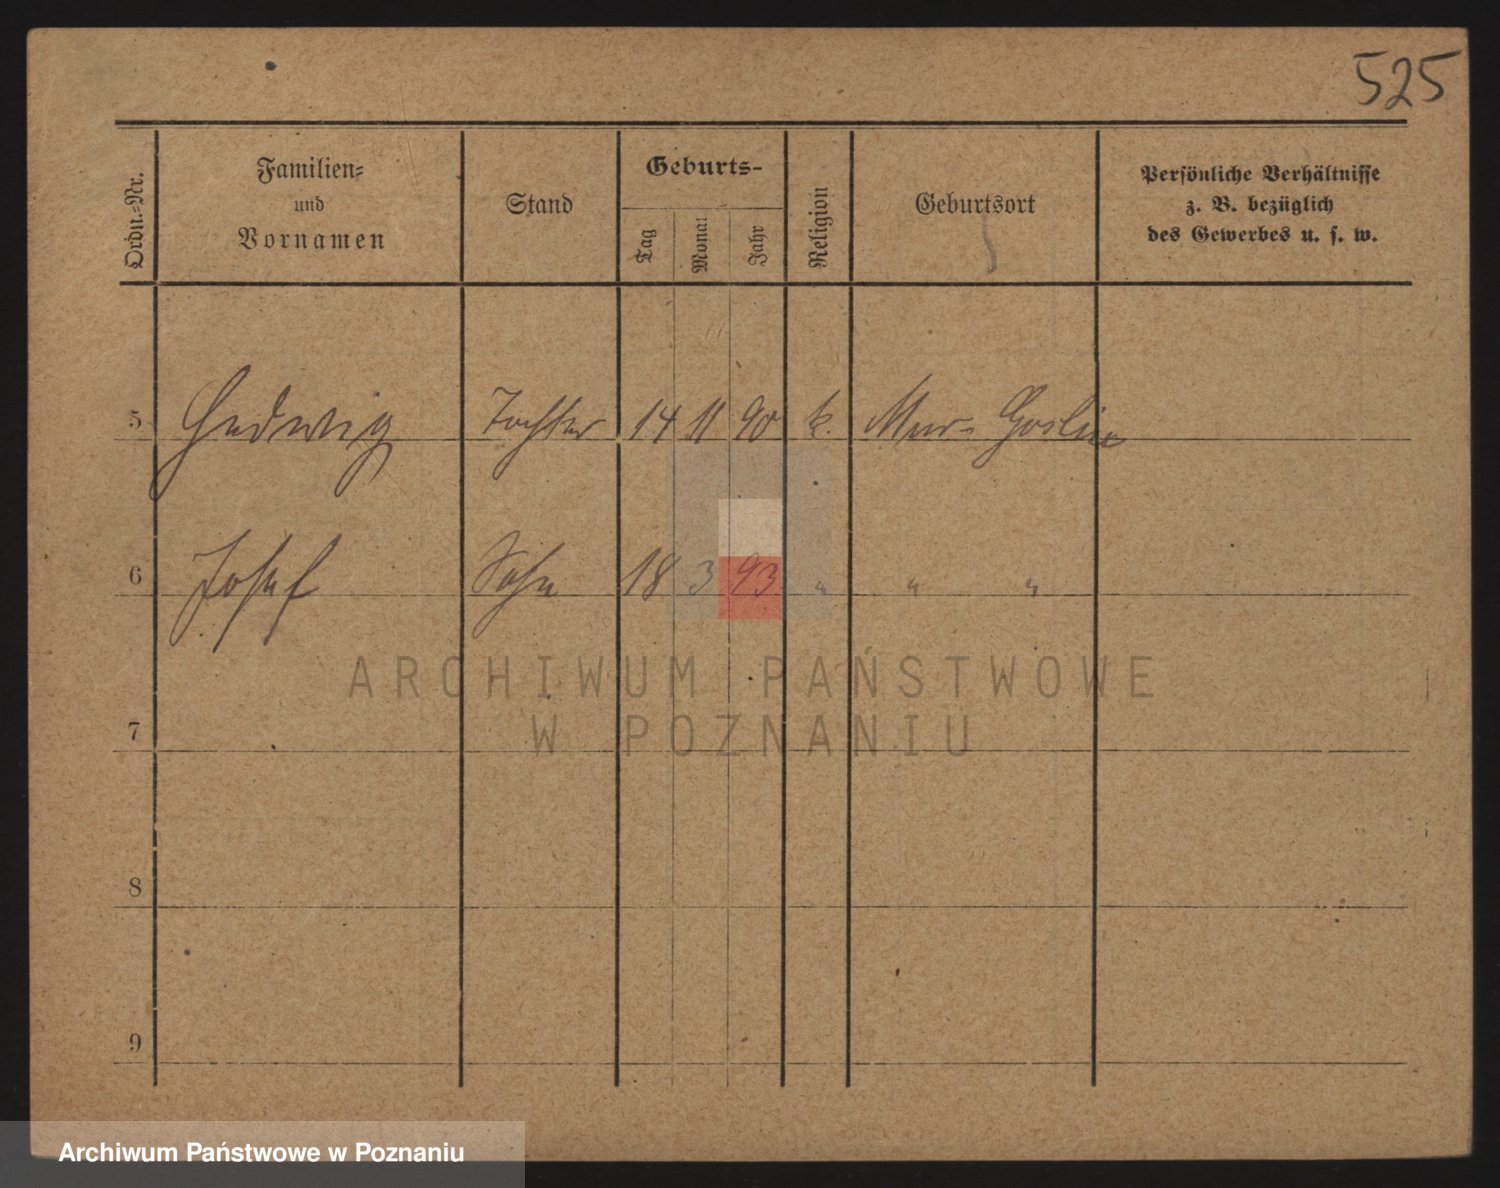 525
Ordn.-Nr.
Familien-
und
Vornamen
Stand
Geburts-
Tag
Monat
Jahr
Religion
Geburtsort
Persönliche Verhältnisse
z. B. bezüglich
des Gewerbes u. s. w.
5 Hedwig Tochter 14 11 90 k. Mur- Goslin
6 Josef Sohn 18 3 93 " " "
7
8
9
ARCHIWUM PAŃSTWOWE
W POZNANIU
Archiwum Państwowe w Poznaniu